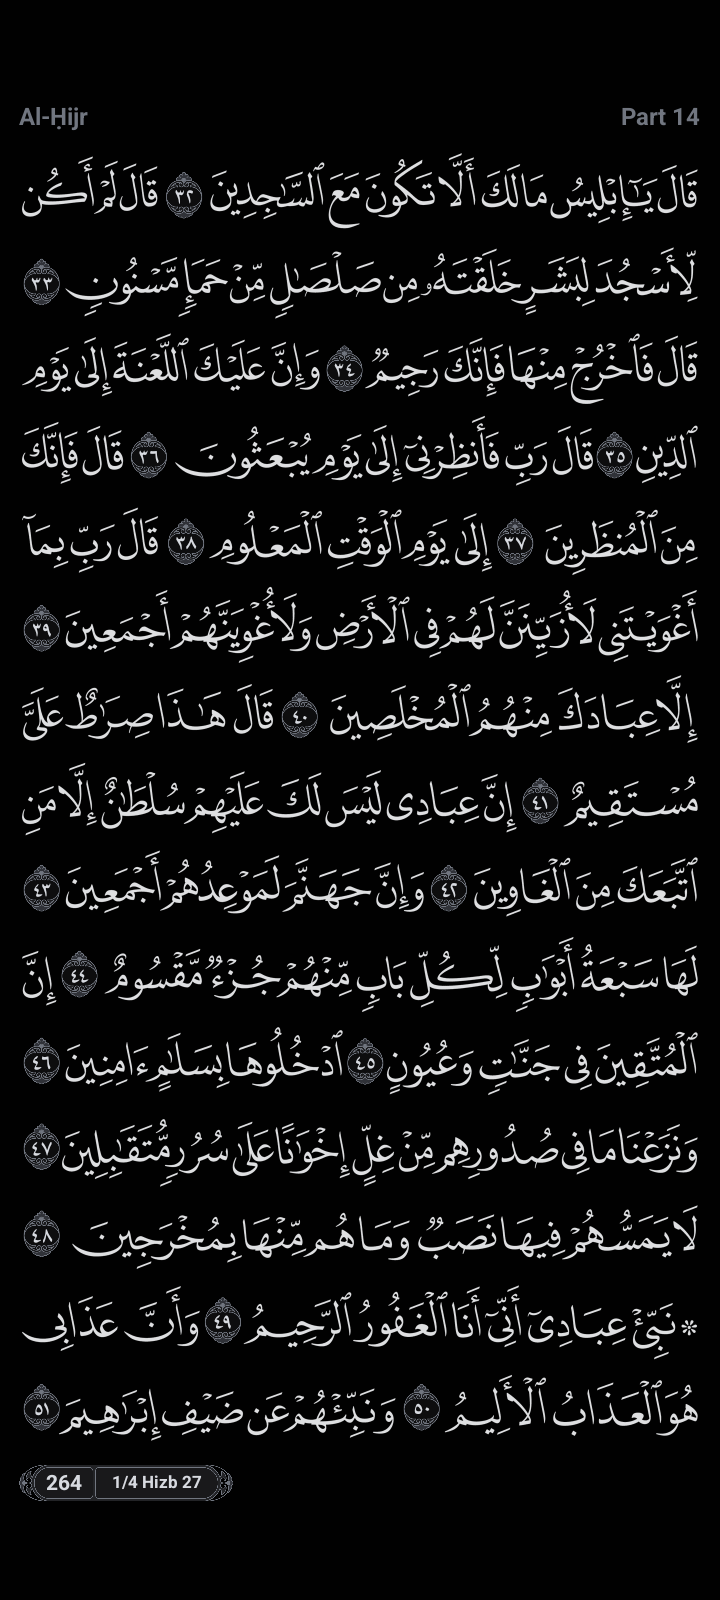 Al-Ḥijr
Part 14
قَالَ يَـٰٓإِبۡلِيسُ مَا لَكَ أَلَّا تَكُونَ مَعَ ٱلسَّـٰجِدِينَ ٣٢ قَالَ لَمۡ أَكُن
لِّأَسۡجُدَ لِبَشَرٍ خَلَقۡتَهُۥ مِن صَلۡصَـٰلٖ مِّنۡ حَمَإٖ مَّسۡنُونٖ ٣٣
قَالَ فَٱخۡرُجۡ مِنۡهَا فَإِنَّكَ رَجِيمٞ ٣٤ وَإِنَّ عَلَيۡكَ ٱللَّعۡنَةَ إِلَىٰ يَوۡمِ
ٱلدِّينِ ٣٥ قَالَ رَبِّ فَأَنظِرۡنِيٓ إِلَىٰ يَوۡمِ يُبۡعَثُونَ ٣٦ قَالَ فَإِنَّكَ
مِنَ ٱلۡمُنظَرِينَ ٣٧ إِلَىٰ يَوۡمِ ٱلۡوَقۡتِ ٱلۡمَعۡلُومِ ٣٨ قَالَ رَبِّ بِمَآ
أَغۡوَيۡتَنِي لَأُزَيِّنَنَّ لَهُمۡ فِي ٱلۡأَرۡضِ وَلَأُغۡوِيَنَّهُمۡ أَجۡمَعِينَ ٣٩
إِلَّا عِبَادَكَ مِنۡهُمُ ٱلۡمُخۡلَصِينَ ٤٠ قَالَ هَـٰذَا صِرَٰطٌ عَلَيَّ
مُسۡتَقِيمٌ ٤١ إِنَّ عِبَادِي لَيۡسَ لَكَ عَلَيۡهِمۡ سُلۡطَـٰنٌ إِلَّا مَنِ
ٱتَّبَعَكَ مِنَ ٱلۡغَاوِينَ ٤٢ وَإِنَّ جَهَنَّمَ لَمَوۡعِدُهُمۡ أَجۡمَعِينَ ٤٣
لَهَا سَبۡعَةُ أَبۡوَٰبٖ لِّكُلِّ بَابٖ مِّنۡهُمۡ جُزۡءٞ مَّقۡسُومٌ ٤٤ إِنَّ
ٱلۡمُتَّقِينَ فِي جَنَّـٰتٖ وَعُيُونٍ ٤٥ ٱدۡخُلُوهَا بِسَلَـٰمٍ ءَامِنِينَ ٤٦
وَنَزَعۡنَا مَا فِي صُدُورِهِم مِّنۡ غِلٍّ إِخۡوَٰنًا عَلَىٰ سُرُرٖ مُّتَقَـٰبِلِينَ ٤٧
لَا يَمَسُّهُمۡ فِيهَا نَصَبٞ وَمَا هُم مِّنۡهَا بِمُخۡرَجِينَ ٤٨
۞ نَبِّئۡ عِبَادِيٓ أَنِّيٓ أَنَا ٱلۡغَفُورُ ٱلرَّحِيمُ ٤٩ وَأَنَّ عَذَابِي
هُوَ ٱلۡعَذَابُ ٱلۡأَلِيمُ ٥٠ وَنَبِّئۡهُمۡ عَن ضَيۡفِ إِبۡرَٰهِيمَ ٥١
264
1/4 Hizb 27